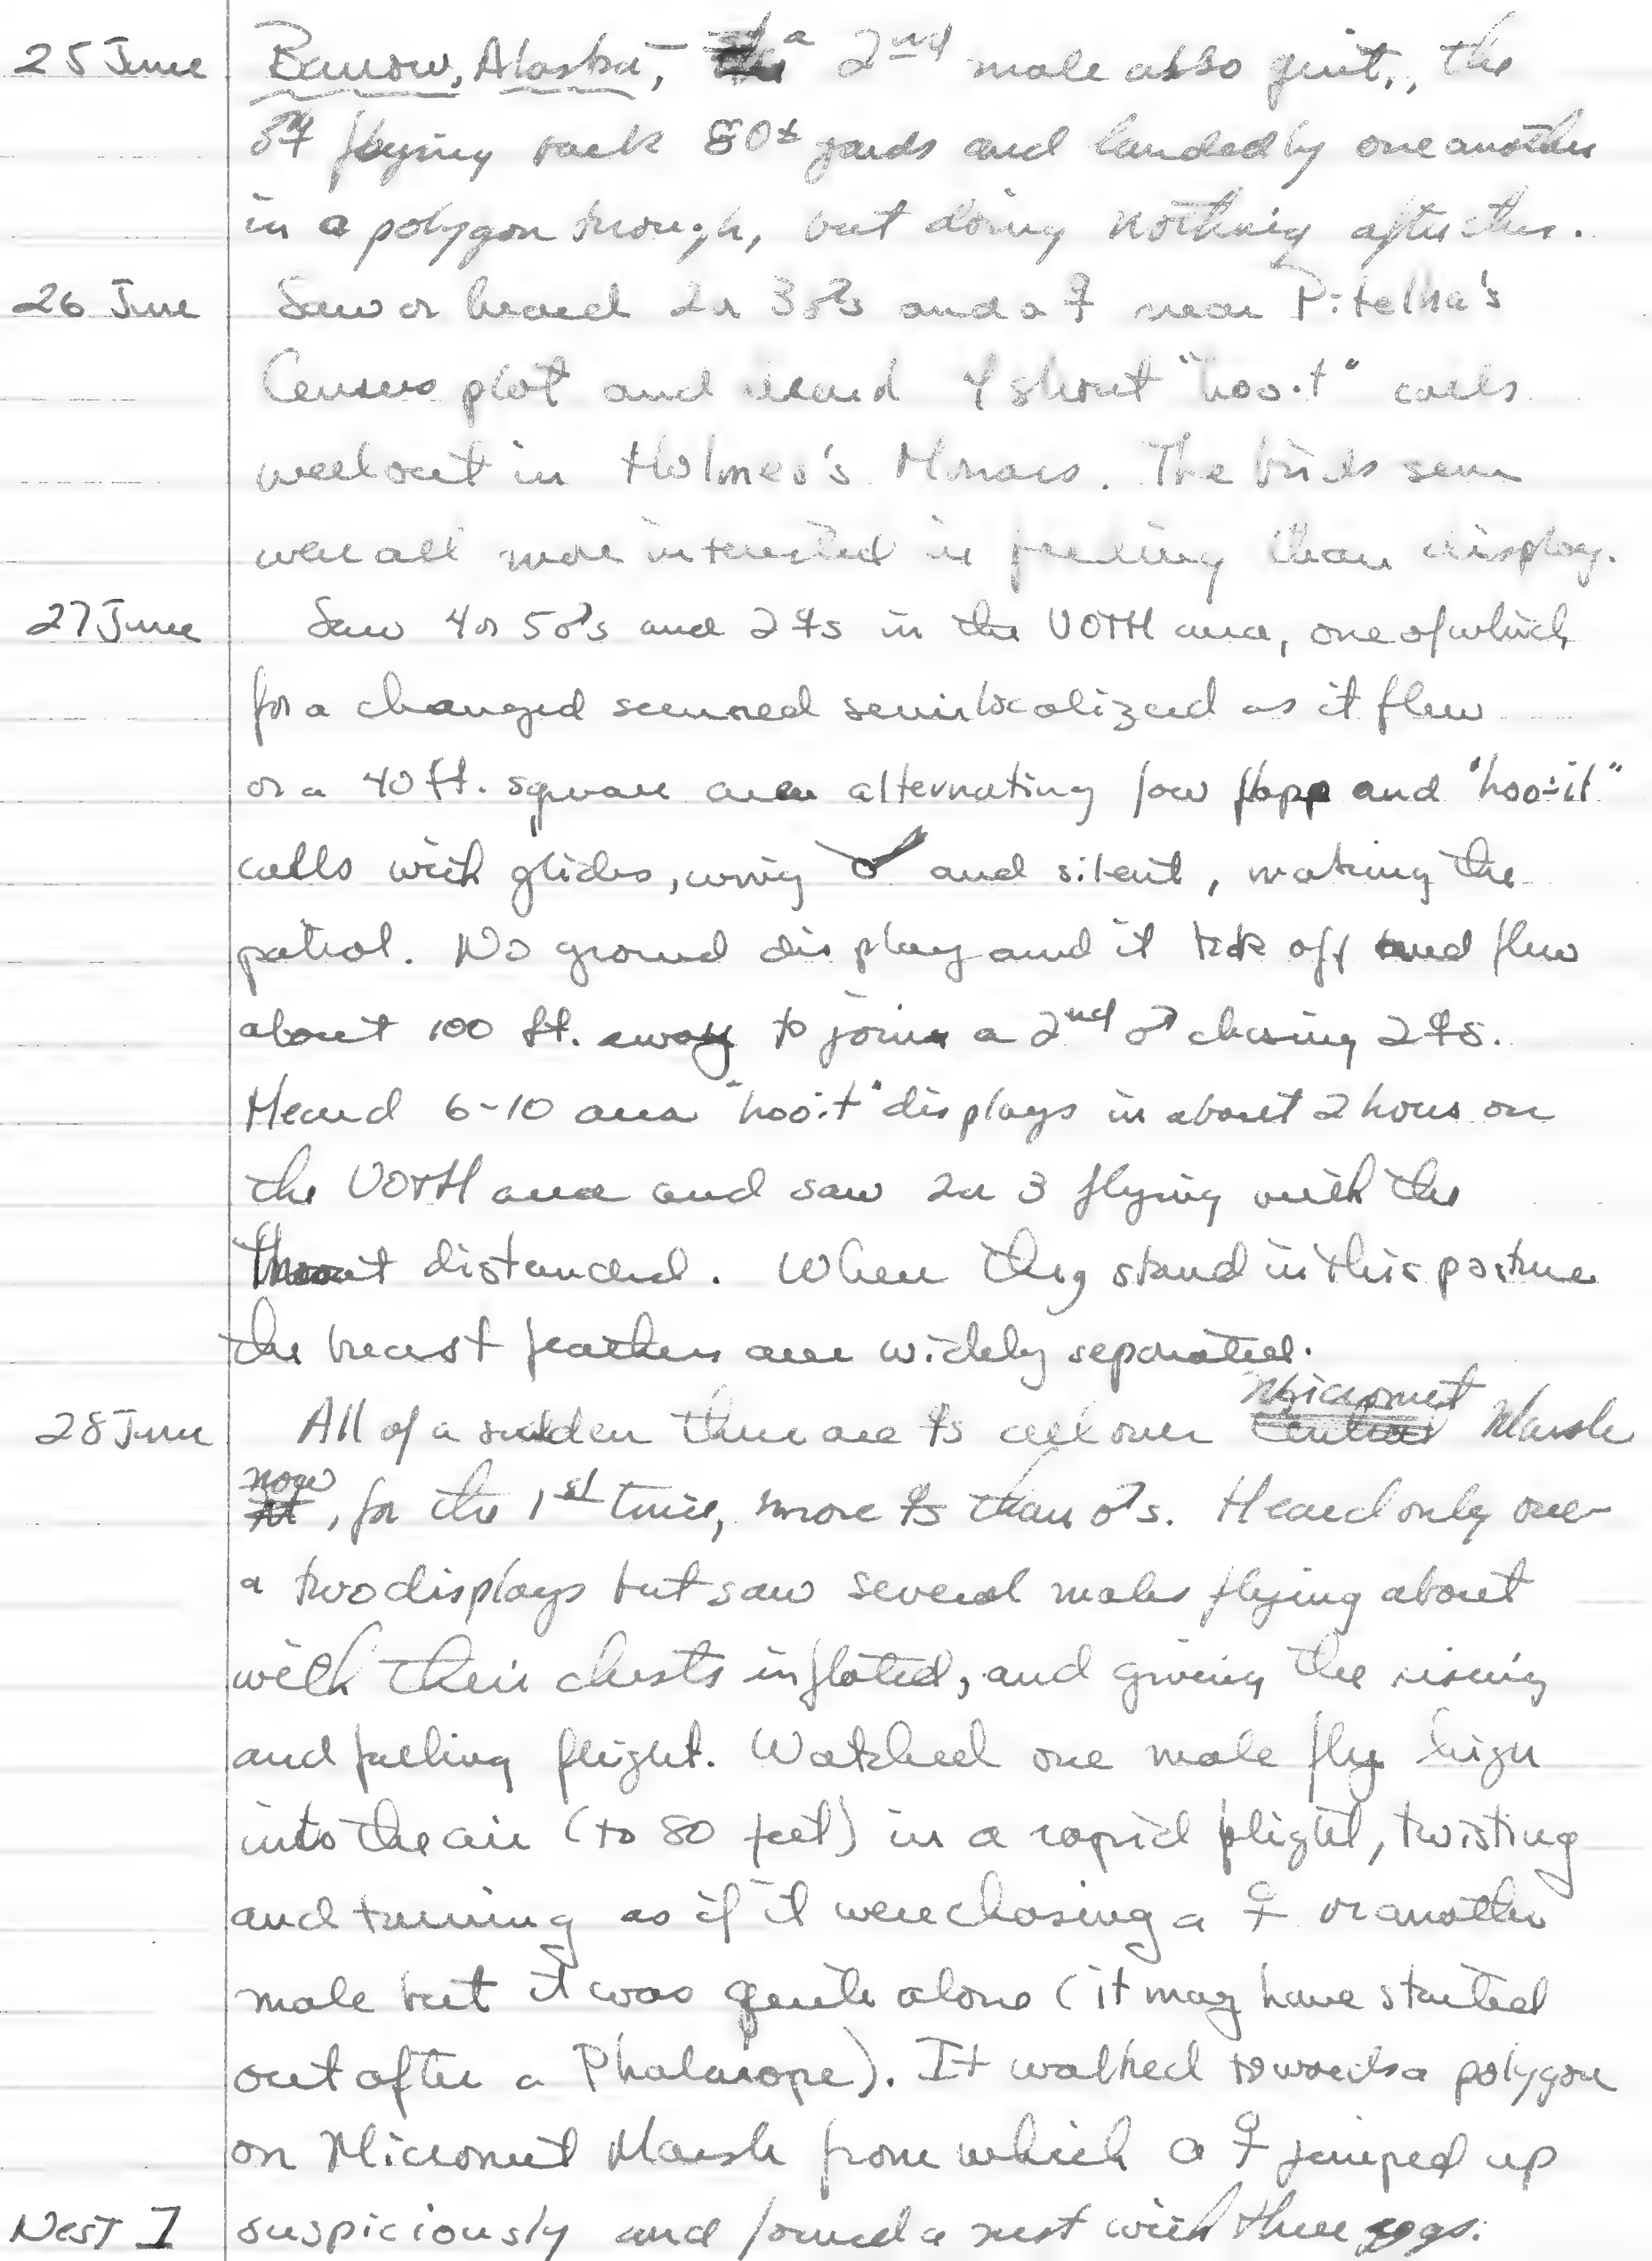 25 June Barrow, Alaska, - a 2nd male also quit., the
♂♀ flying back 80± yards and landed by one another
in a polygon trough, but doing nothing after this.
26 June Saw or heard 2 or 3 ♂s and a ♀ near Pitelka's
Census plot and heard 4 short "hoo-it" calls
well out in Holmes's Monars. The birds seen
were all more interested in feeding than display.
27 June Saw 4 or 5 ♂s and 2 ♀s in the VOTH area, one of which
for a changed seemed semi localized as it flew
on a 40 ft. square area alternating low flapp and "hoo-it"
calls with glides, wing and silent, making the
patrol. No ground display and it took off and flew
about 100 ft. away to join a 2nd ♂ chasing 2 ♀s.
Heard 6-10 "hoo-it" displays in about 2 hours on
the VOTH area and saw 2 or 3 flying with the
throat distended. When they stand in this posture
the breast feathers are widely separated.
28 June All of a sudden there are ♀s all over Micromet Marsh
now, for the 1st time, more ♀s than ♂s. Heard only one
or two displays but saw several males flying about
with their chests inflated, and giving the rising
and falling flight. Watched one male fly high
into the air (to 80 feet) in a rapid flight, twisting
and turning as if it were chasing a ♀ or another
male but it was quite alone (it may have started
out after a Phalarope). It walked towards a polygon
on Micromet Marsh from which a ♀ jumped up
Nest 1 suspiciously and found a nest with three eggs.